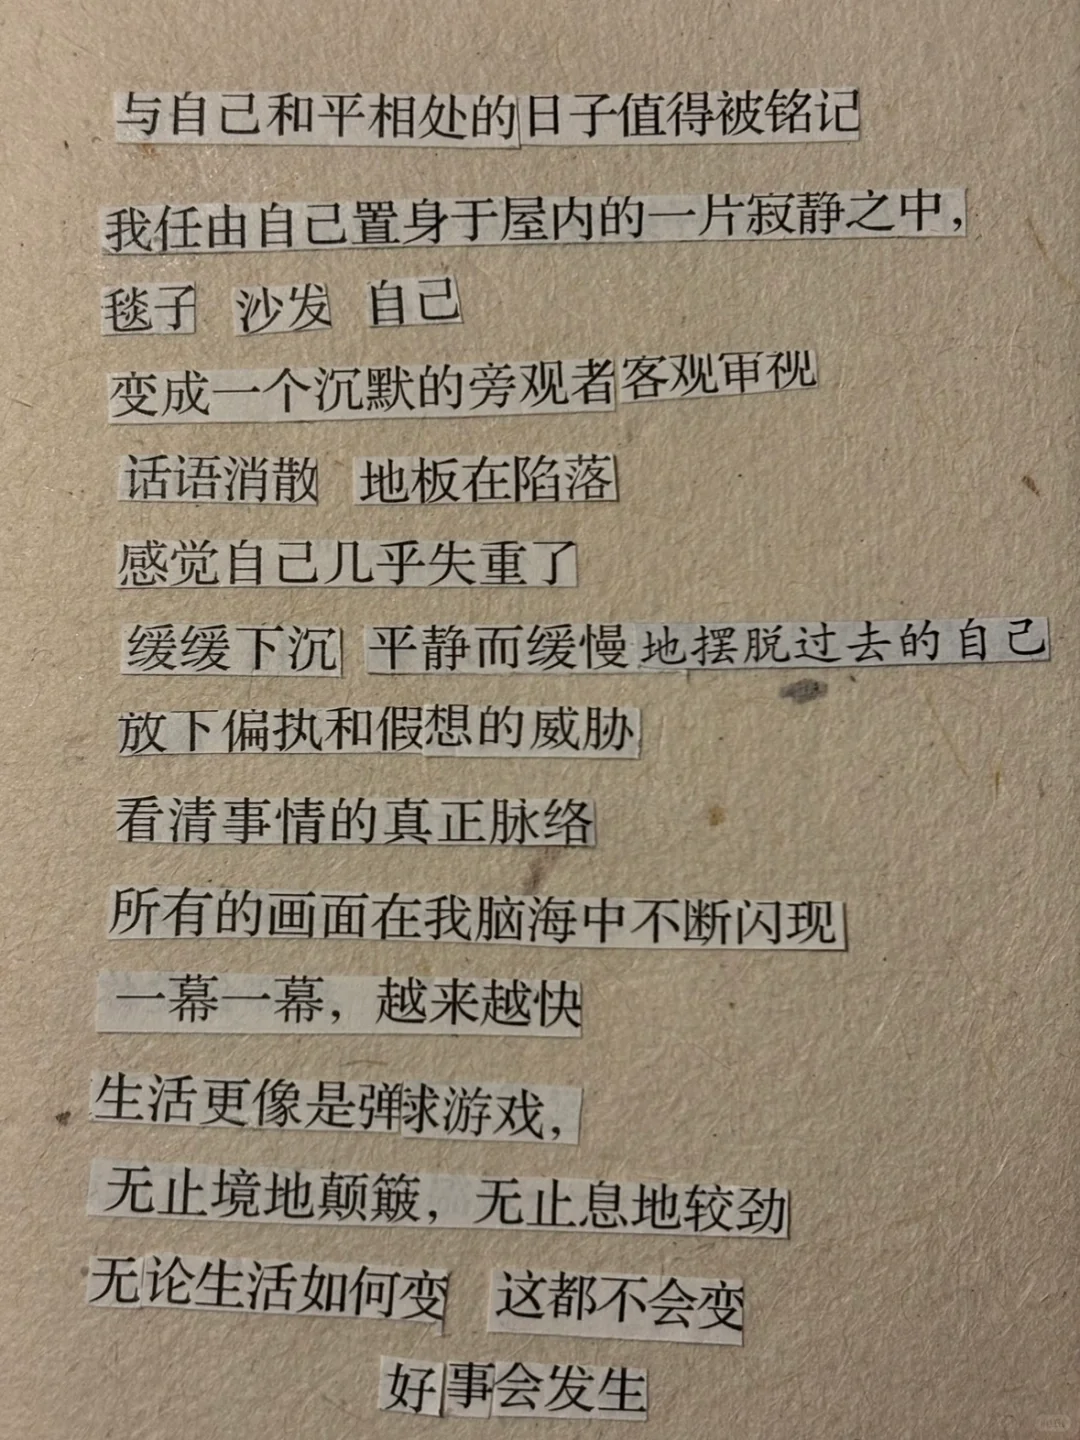 与自己和平相处的日子值得被铭记
我任由自己置身于屋内的一片寂静之中，
毯子 沙发 自己
变成一个沉默的旁观者客观审视
话语消散 地板在陷落
感觉自己几乎失重了
缓缓下沉 平静而缓慢地摆脱过去的自己
放下偏执和假想的威胁
看清事情的真正脉络
所有的画面在我脑海中不断闪现
一幕一幕，越来越快
生活更像是弹球游戏，
无止境地颠簸，无止息地较劲
无论生活如何变 这都不会变
好事会发生